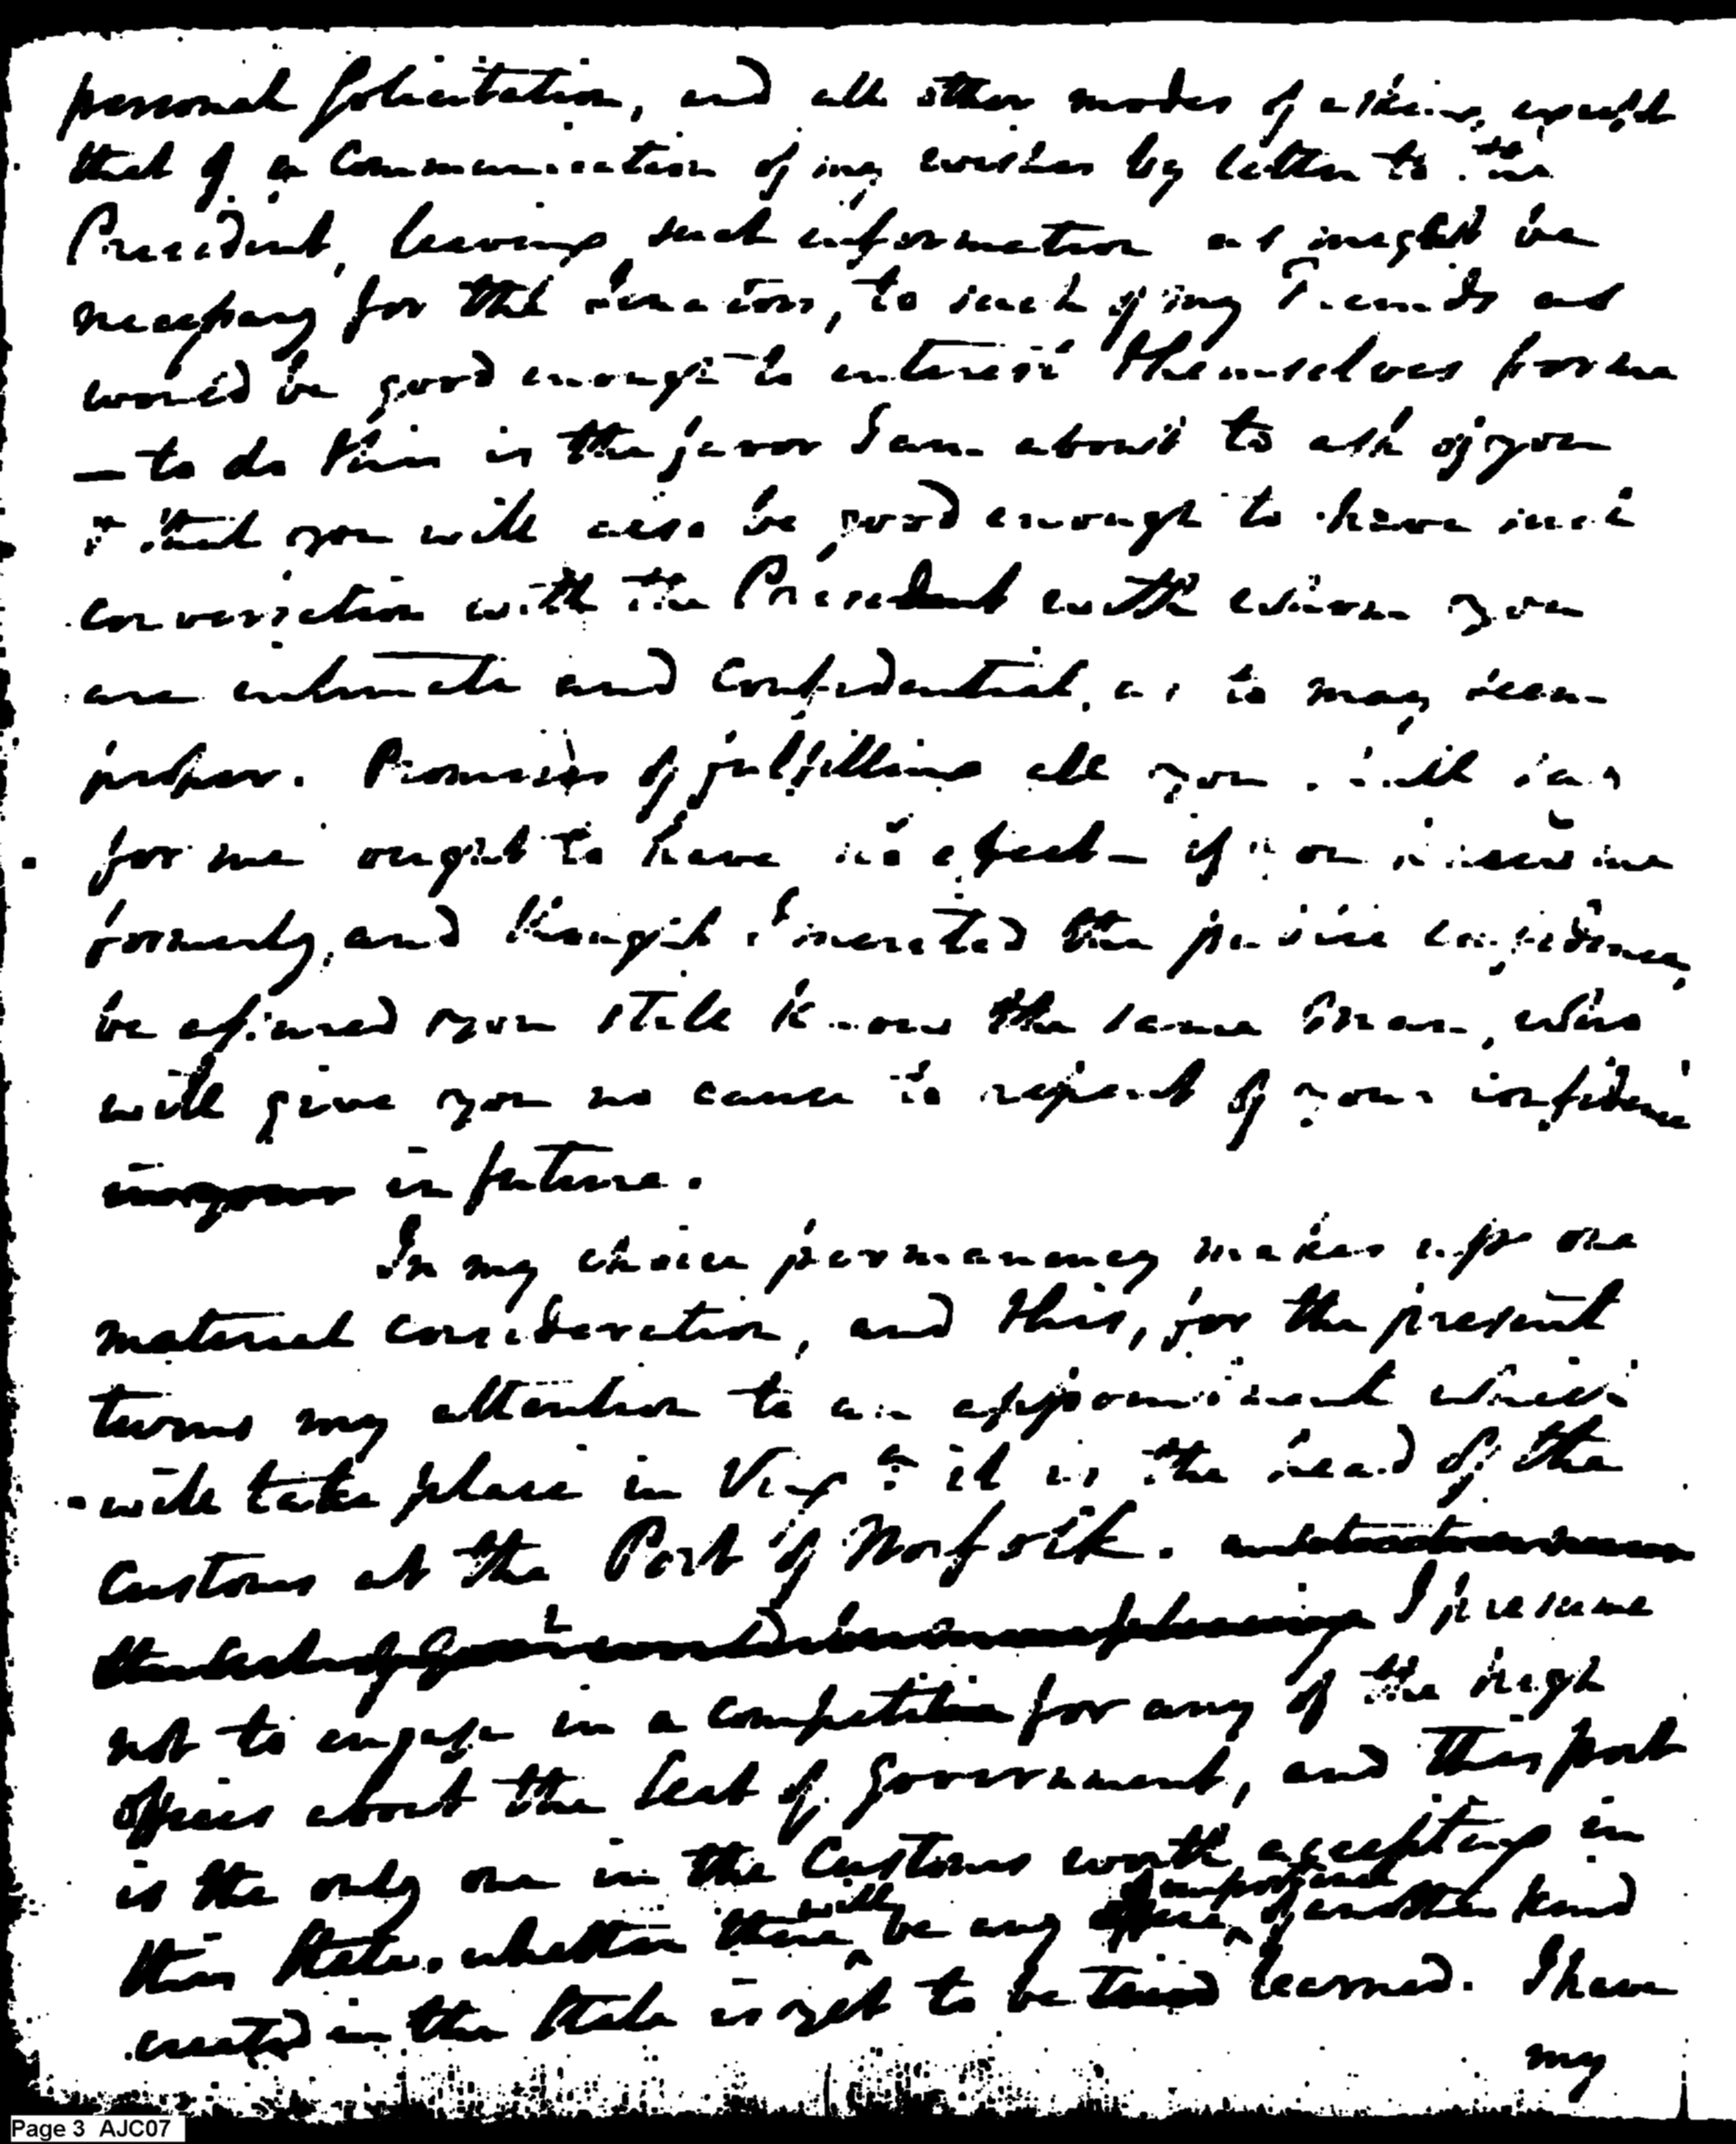 personal solicitation, and all other modes of asking, except
that of a Communication of my wishes by letter to the
President, leaving such information as might be
necessary for the Senators, to such of my Friends as
would be good enough to interest themselves for me
— to do this is the favor I am about to ask of you
& that you will also be good enough to have such
conversation with the President with whom you
are intimate and Confidential, as to may seem
proper. Promises of fulfilling all you will say
for me ought to have no effect — if you knew me
formerly, and thought I merited the public confidence,
be assured you still know the same Man, who
will give you no cause to repent of your confidence
in future.
In my choice permanency makes up one
material consideration, and this, for the present
turns my attention to an appointment which
will take place in Virga. it is the head of the
Customs at the Port of Norfolk.
I presume
not to engage in a competition for any of the high
offices about the Seat of Government, and this post
is the only one in the Customs worth accepting in
this State. whether there will be any important office of another kind
created in the State is yet to be learned. I have
my
Page 3 AJC07